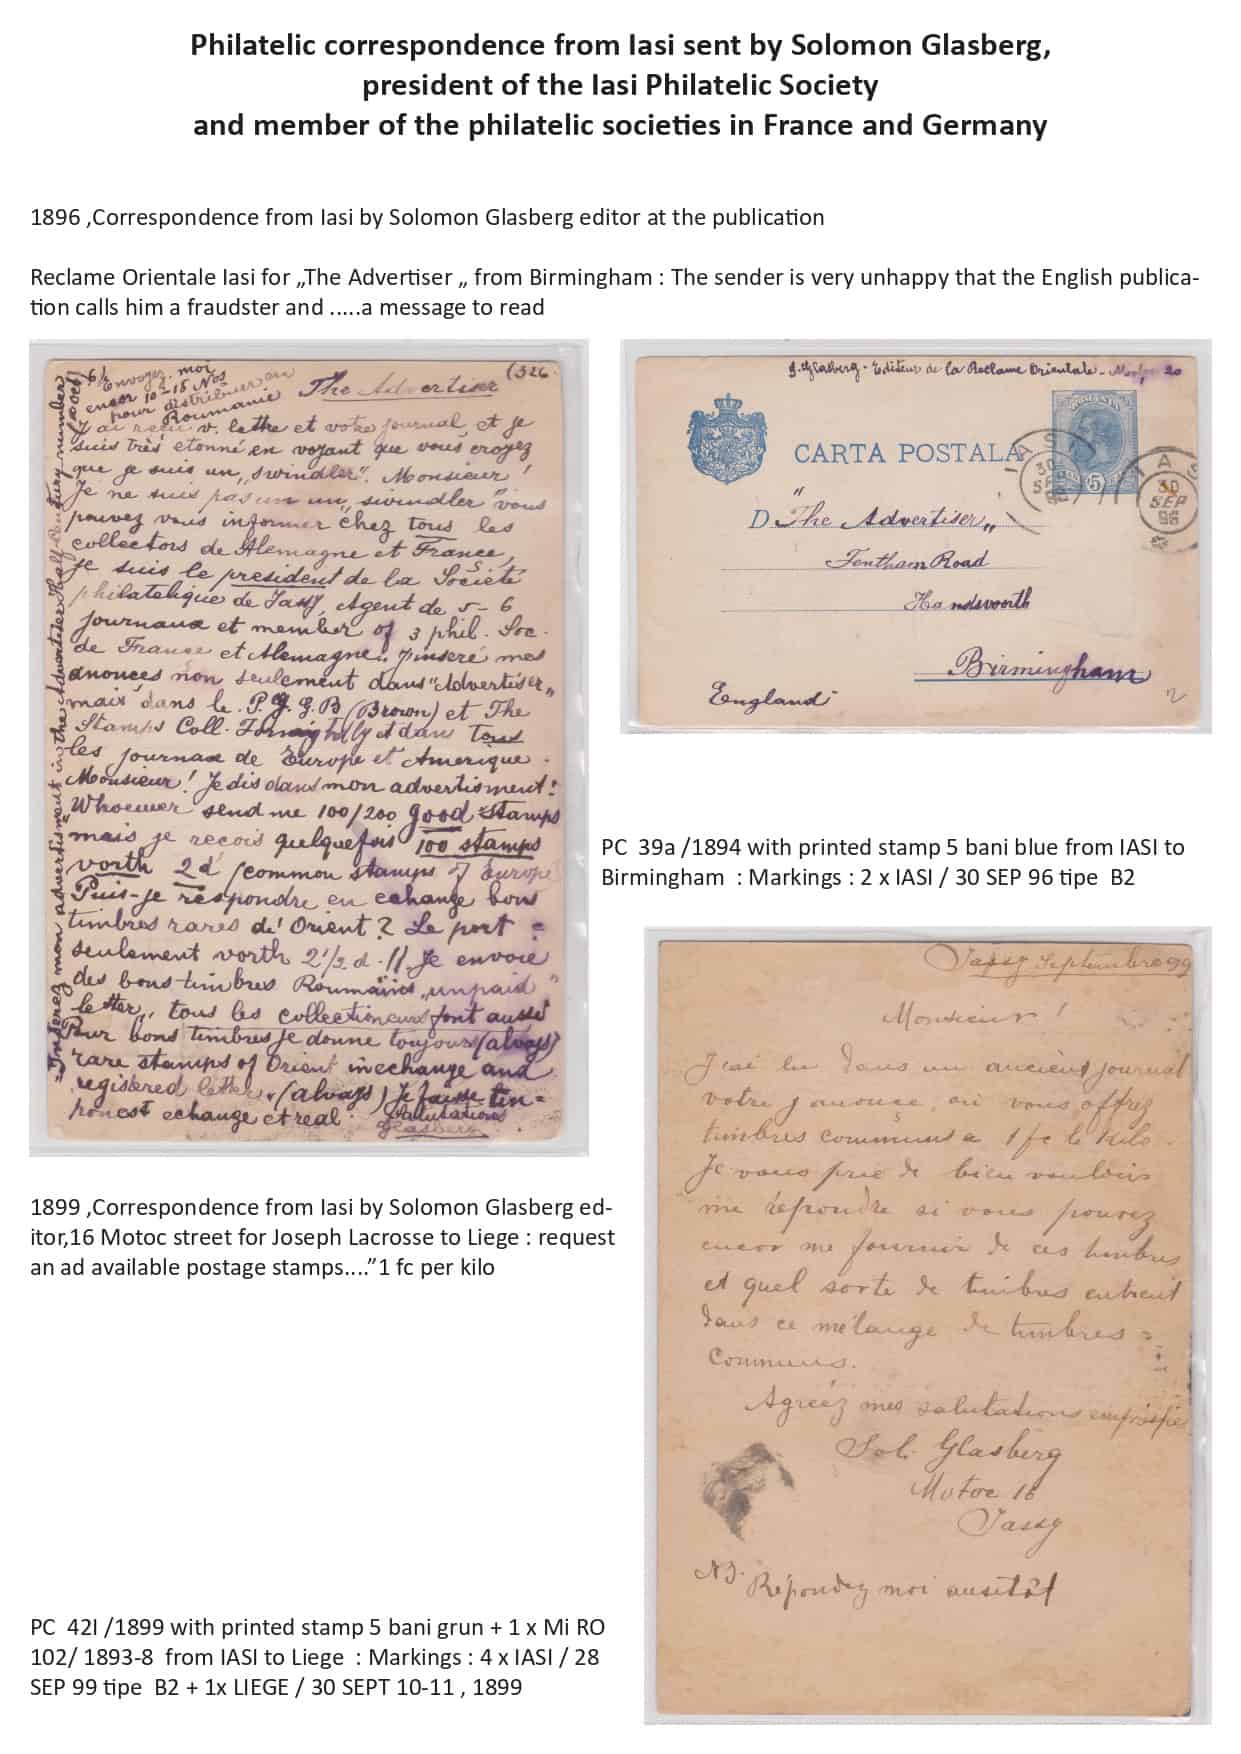 Philatelic correspondence from Iasi sent by Solomon Glasberg,
president of the Iasi Philatelic Society
and member of the philatelic societies in France and Germany
1896 ,Correspondence from Iasi by Solomon Glasberg editor at the publication
Reclame Orientale Iasi for „The Advertiser „ from Birmingham : The sender is very unhappy that the English publica-
tion calls him a fraudster and .....a message to read
(326
Envoyez moi
encor 10-15 Nos
pour distribuer en
Roumanie
The Advertiser
J'ai reçu v. lettre et votre journal, et je
suis très etonné en voyant que vous croyez
que je suis un „swindler". Monsieur!
Je ne suis pas un „swindler" vous
pouvez vous informer chez tous les
collectors de Alemagne et France,
je suis le president de la Societé
philatelique de Jassy, Agent de 5-6
journaux et member of 3 phil. Soc.
de France et Alemagne. J'inseré mes
anonces non seulement dans "Advertiser„
mais dans le P. J. G. B (Brown) et The
Stamps Coll. Fornightly et dans tous
les journaux de Europe et Amerique.
Monsieur! Je dis dans mon advertisment:
"Whoewer send me 100/200 good stamps
mais je reçois quelquefois 100 stamps
vorth 2d (common stamps of Europe
Puis-je respondre en echange bons
timbres rares de' Orient? Le port =
seulement vorth 2 1/2 d.!! Je envoie
des bons-timbres Roumains „unpaid"
letter„ tous les collectioneurs font aussi
Pour bons timbres je donne toujours (always)
rare stamps of Orient in echange and
registered letter (always) Je faisse un =
honest echange et real. Salutations
Glasberg
=Inserez mon advertisment in the Advertiser Half-Century number
S. Glasberg - Editeur de la Reclame Orientale - 20
ROMANIA
CARTA POSTALA
5
IASI
30
SEP
96
IASI
30
SEP
96
D "The Advertiser„
Fentham Road
Handsworth
Birmingham
England
PC  39a /1894 with printed stamp 5 bani blue from IASI to
Birmingham  : Markings : 2 x IASI / 30 SEP 96 tipe  B2
Jassy Septembre 99
Monsieur!
J'ai lu dans un ancien journal
votre anonçe, où vous offrez
timbres communs a 1 fc le kilo.
Je vous prie de bien vouloir
me répondre si vous pouvez
encor me fournir de ces timbres
et quel sorte de timbres entrent
dans ce mélange de timbres =
communs.
Agreéz mes salutations
Sol. Glasberg
Motoc 16
Jassy
Répondez moi ausitôt
1899 ,Correspondence from Iasi by Solomon Glasberg ed-
itor,16 Motoc street for Joseph Lacrosse to Liege : request
an ad available postage stamps....”1 fc per kilo
PC  42I /1899 with printed stamp 5 bani grun + 1 x Mi RO
102/ 1893-8  from IASI to Liege  : Markings : 4 x IASI / 28
SEP 99 tipe  B2 + 1x LIEGE / 30 SEPT 10-11 , 1899